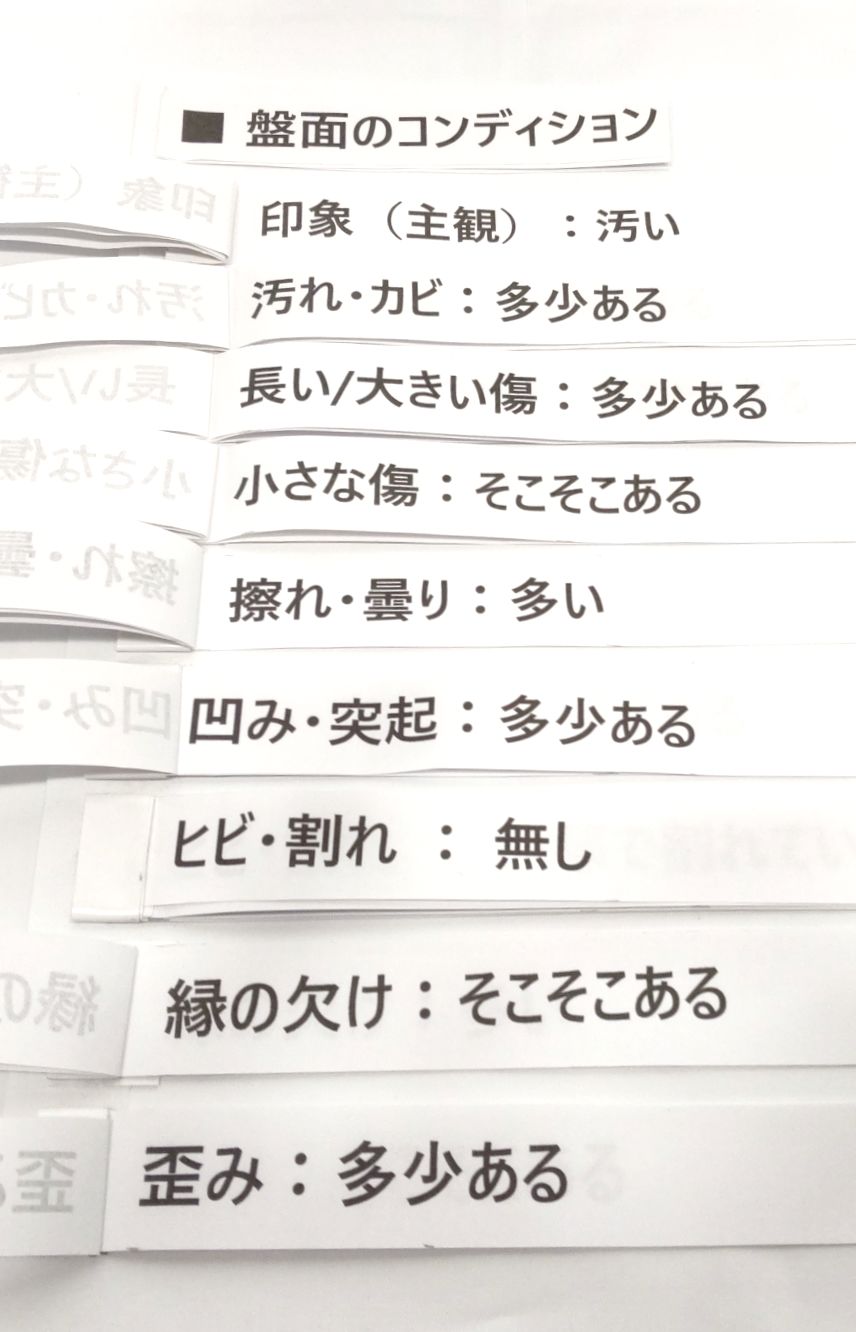 ■ 盤面のコンディション
印象（主観）：汚い
汚れ・カビ：多少ある
長い/大きい傷：多少ある
小さな傷：そこそこある
擦れ・曇り：多い
凹み・突起：多少ある
ヒビ・割れ：無し
縁の欠け：そこそこある
歪み：多少ある